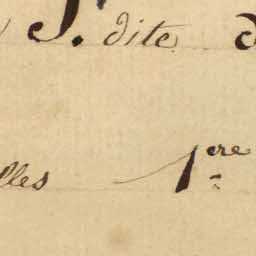 S. dite
lles 1.re